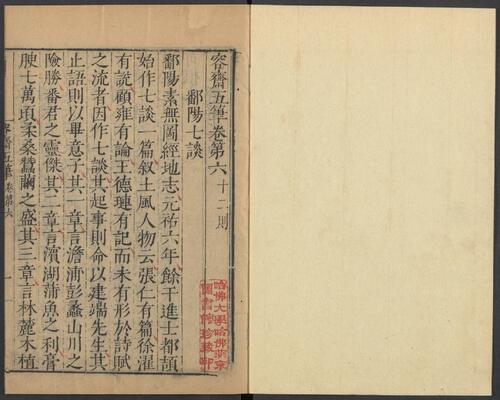 容齋五筆卷第六 十二則
鄱陽七談
鄱陽素無圖經地志元祐六年餘干進士都頡
始作七談一篇叙土風人物云張仁有篇徐濯
有說顧雍有論王德璉有記而未有形於詩賦
之流者因作七談其起事則命以建端先生其
止語則以畢意子其一章言澹浦彭蠡山川之
險勝番君之靈傑其二章言濵湖蒲魚之利膏
腴七萬頃柔桑蠶繭之盛其三章言林麓木植
容齋五筆 卷第六 一
哈佛大學哈佛燕京
圖書館珍藏印